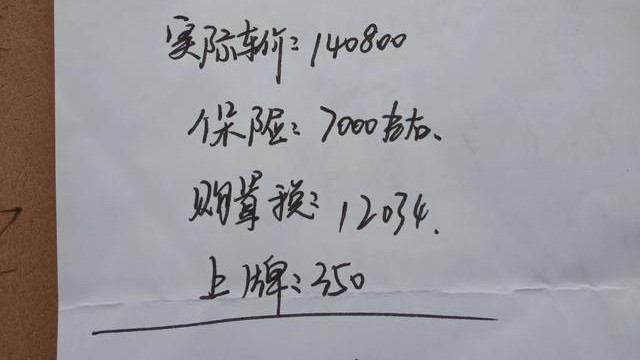 实际车价：140800
保险：7000左右、
购置税：12034.
上牌：350